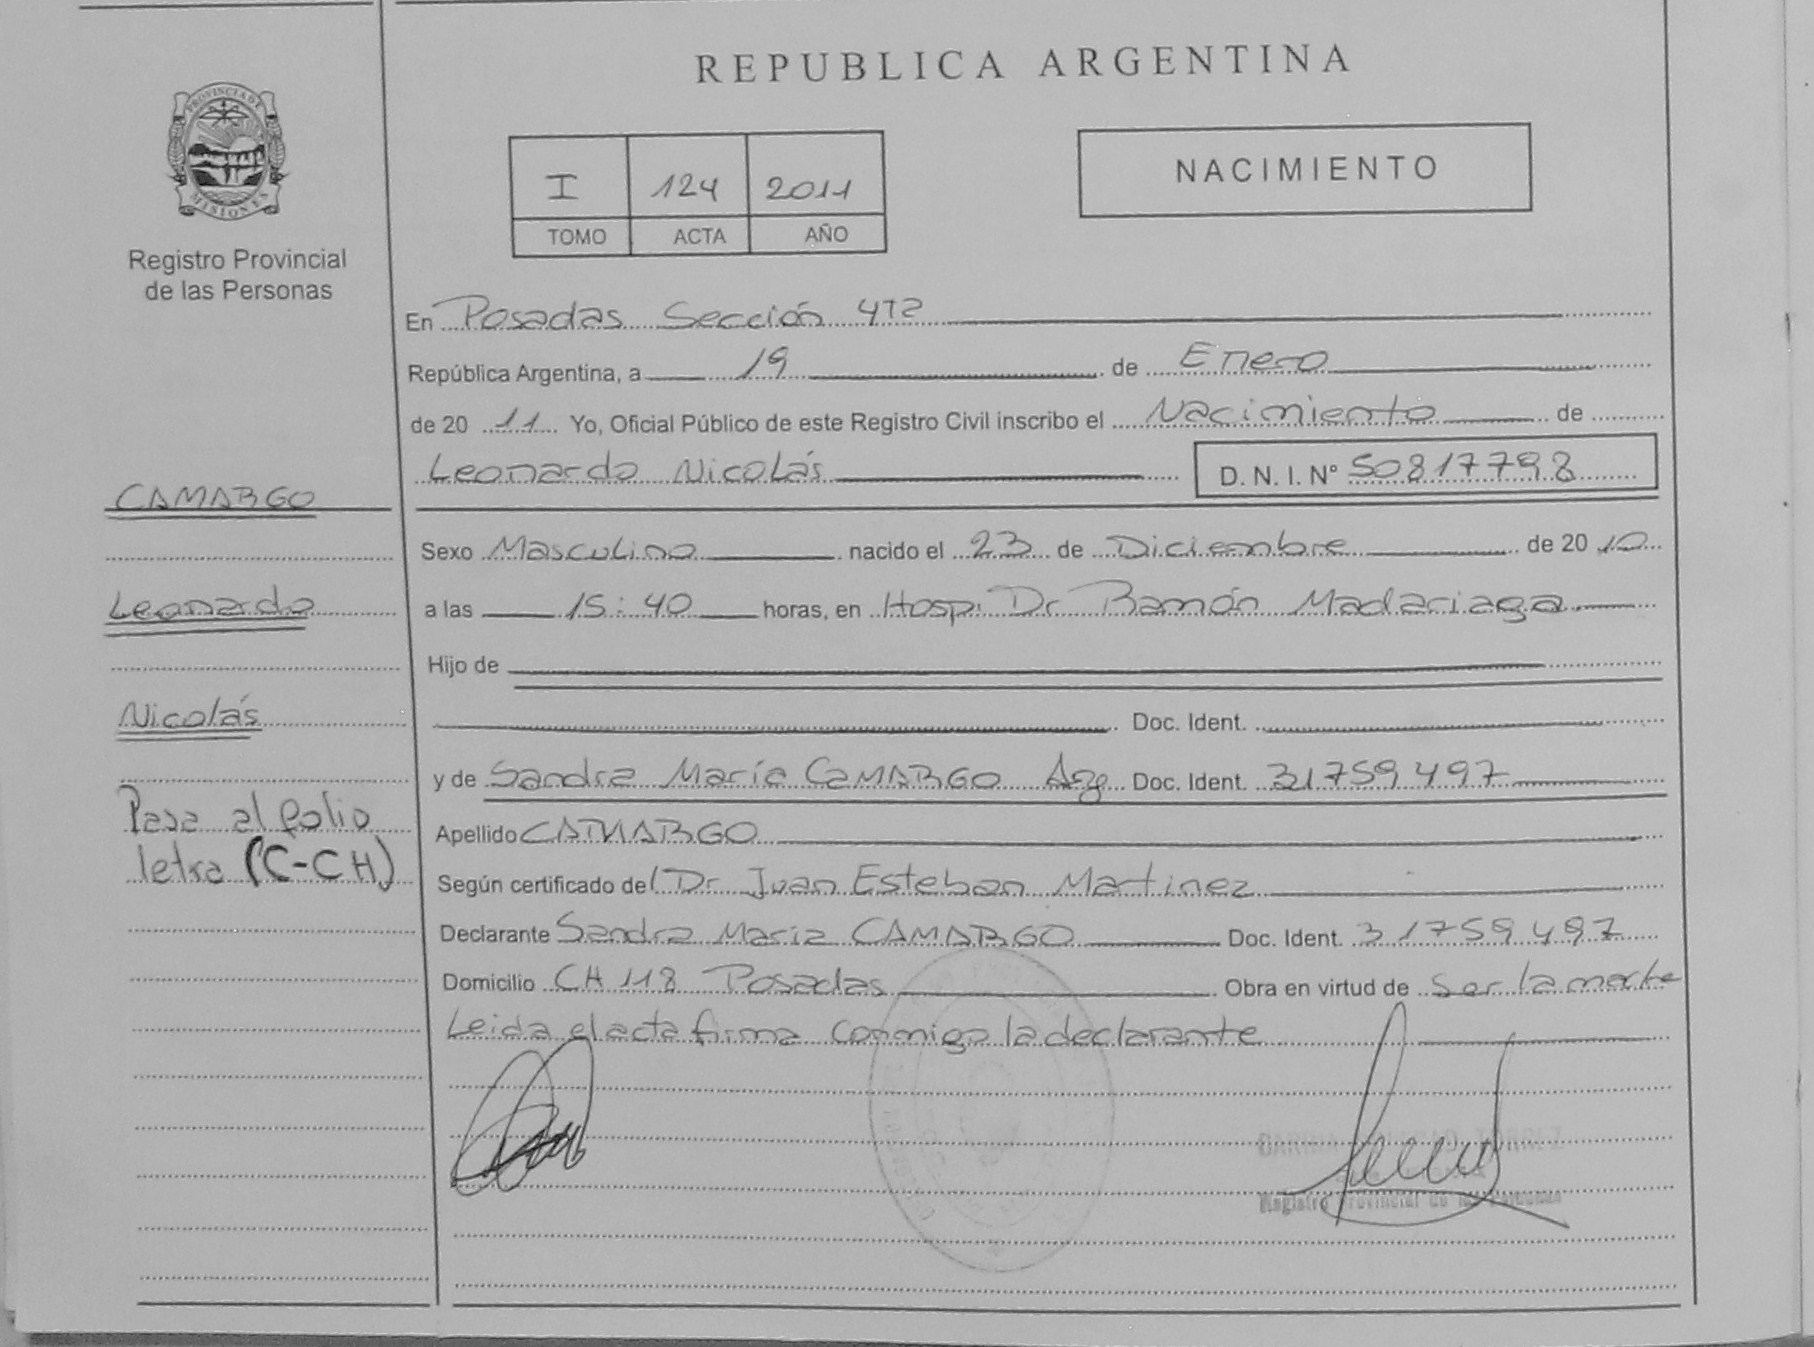 REPUBLICA ARGENTINA
PROVINCIA DE
MISIONES
Registro Provincial
de las Personas
I 124 2011
TOMO ACTA AÑO
NACIMIENTO
En Posadas Sección 4ta
República Argentina, a 19 de Enero
de 20 11 Yo, Oficial Público de este Registro Civil inscribo el Nacimiento de
Leonardo Nicolás D. N. I. Nº 50817798
CAMARGO
Leonardo
Nicolás
Pasa al folio
letra (C-CH)
Sexo Masculino nacido el 23 de Diciembre de 20 10
a las 15:40 horas, en Hosp. Dr Ramón Madariaga
Hijo de
Doc. Ident.
y de Sandra María CAMARGO Arg Doc. Ident. 31759497
Apellido CAMARGO
Según certificado del Dr Juan Esteban Martinez
Declarante Sandra Maria CAMARGO Doc. Ident. 31759497
Domicilio CH 118 Posadas Obra en virtud de Ser la madre
Leida el acta firma conmigo la declarante
Registro Provincial de las Personas